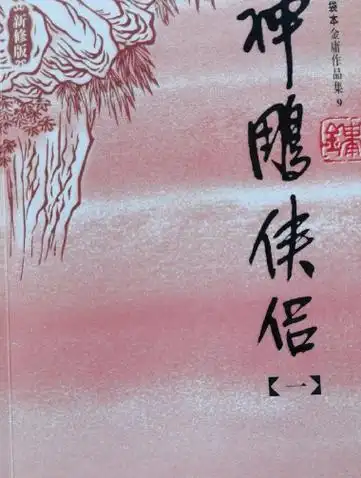 新修版
袋本 金庸作品集 9
神鵰俠侶
【一】